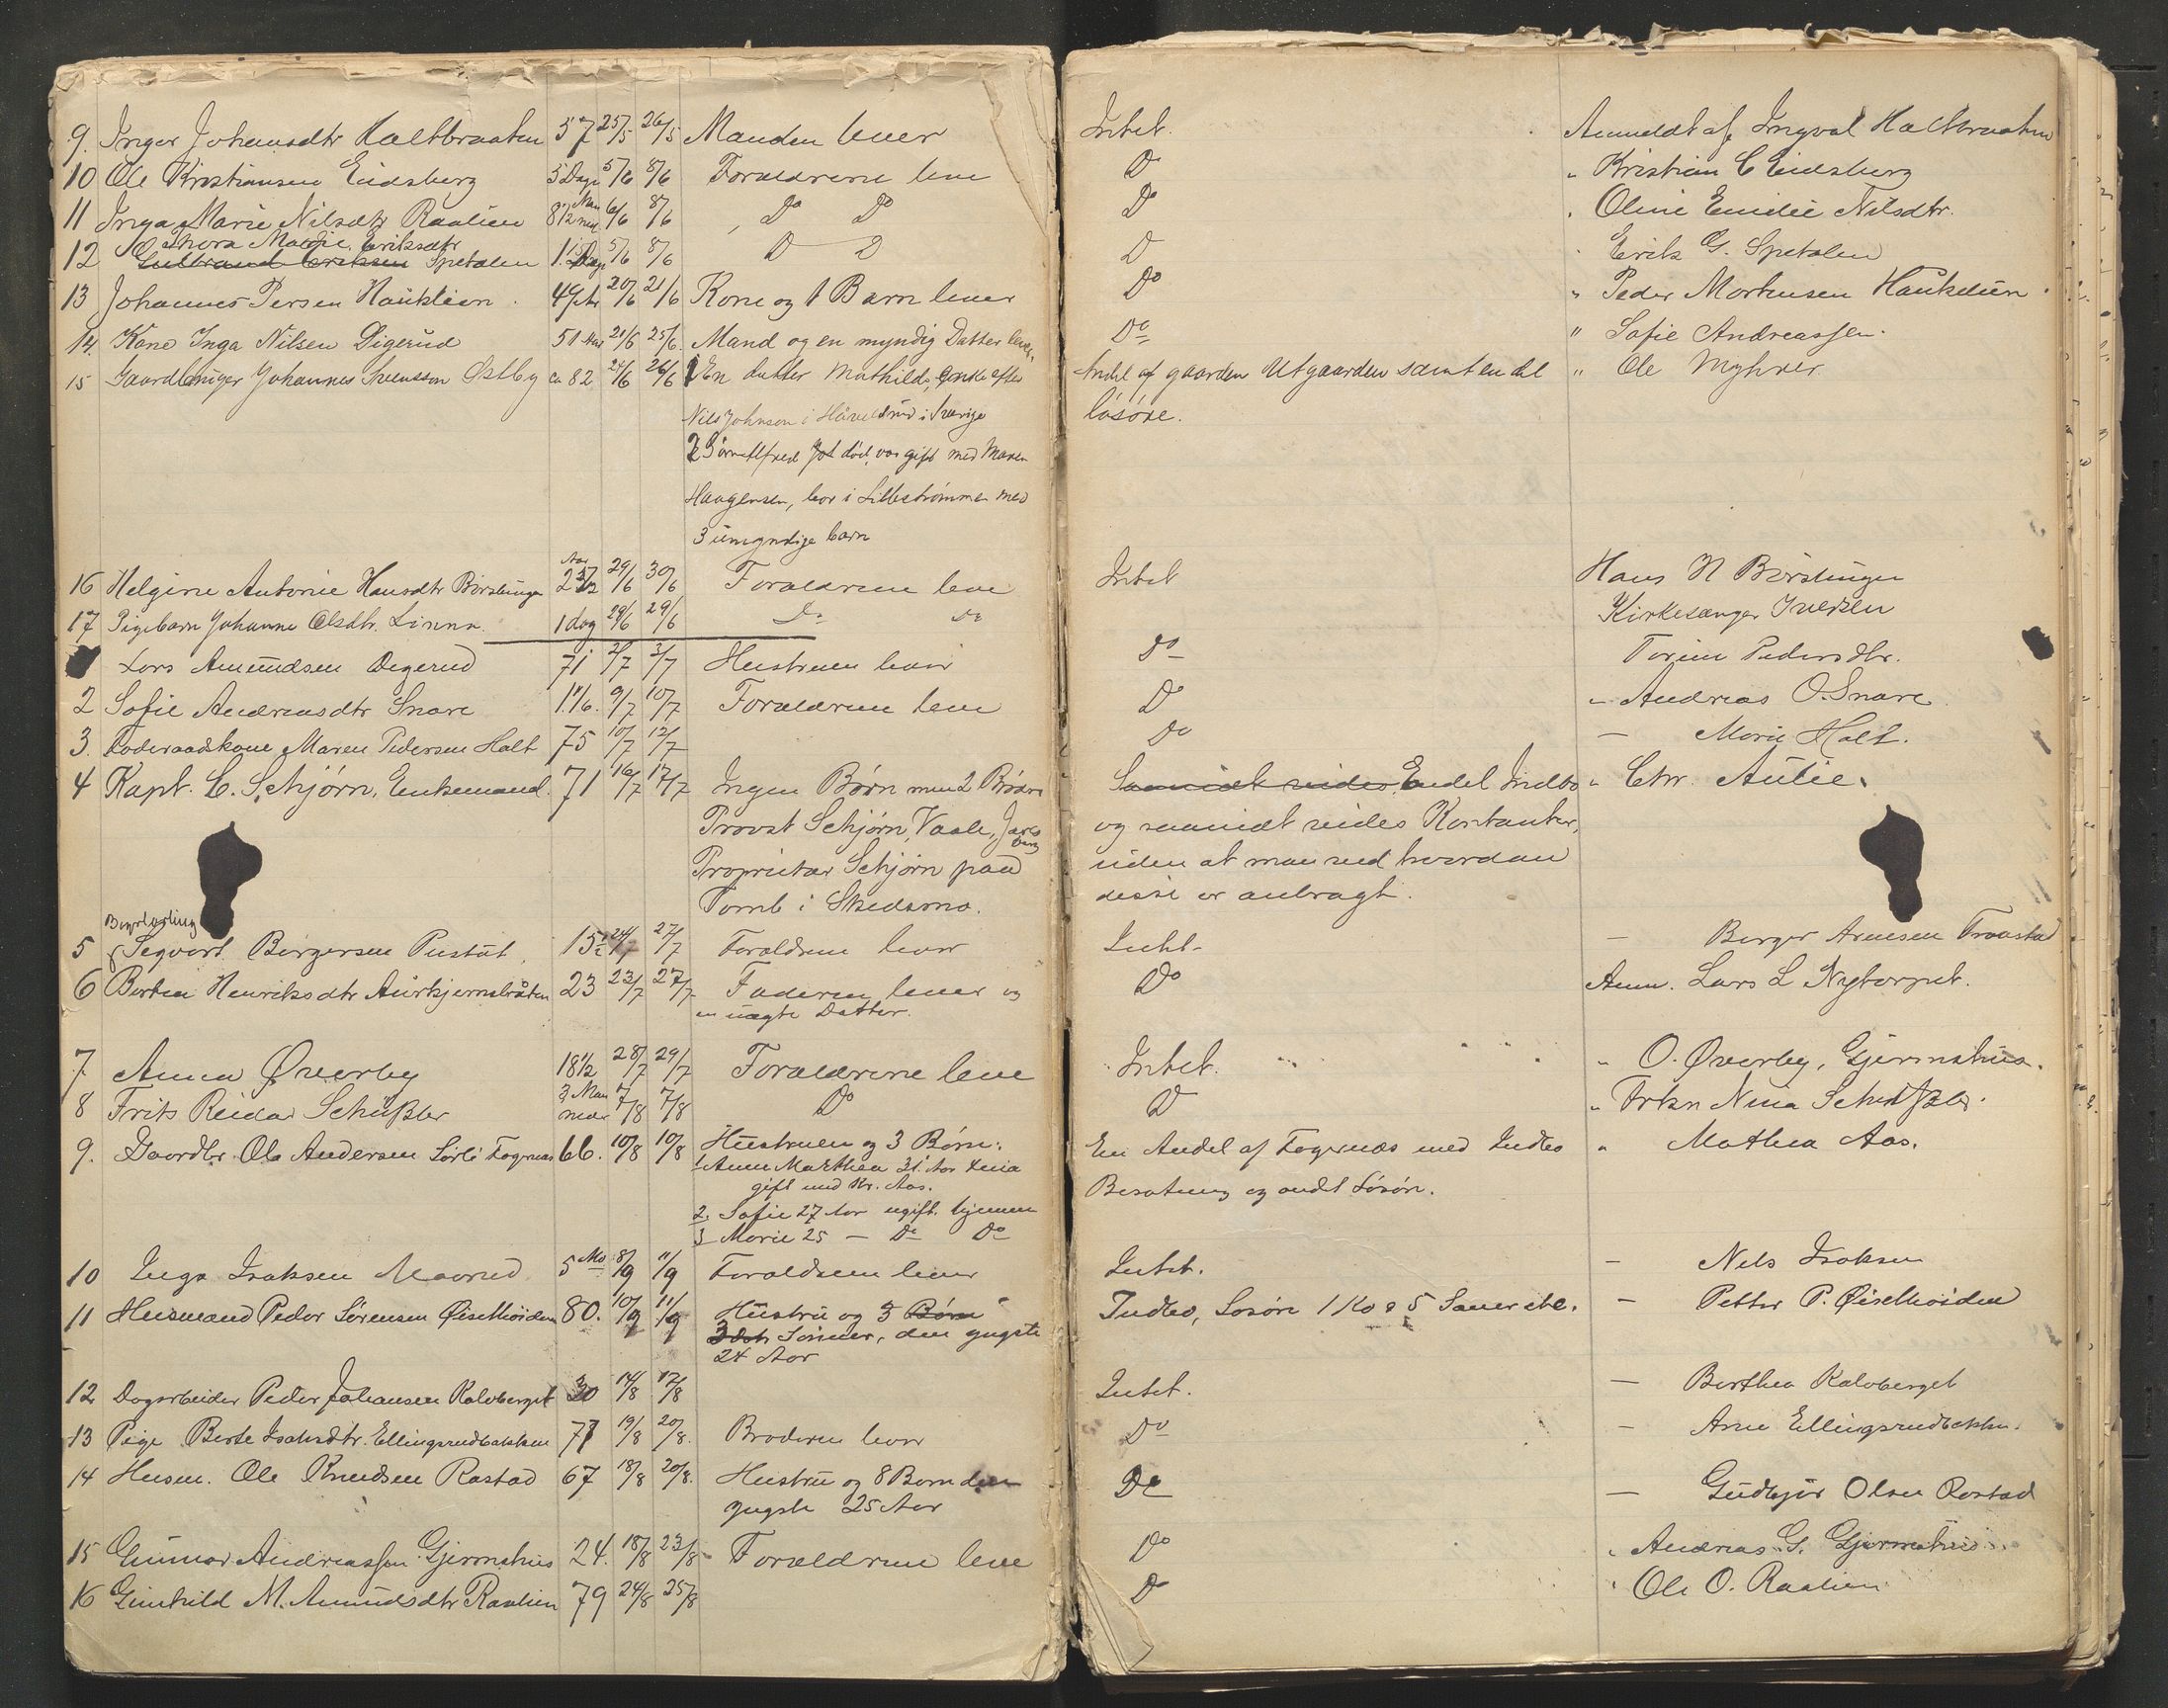 9. Inger Johansdtr Haltbraaten 57 25/5 26/5 Manden lever Intet. Anmeldt af Ingval Haltbraaten
10 Ole Kristiansen Eidsberg 5 Dage 5/6 8/6 Forældrene leve Do " Kristian C Eidsberg
11 Inga Marie Nilsdtr Raalien 8 1/2 Maaned 6/6 8/6 Do Do Do " Oline Emilie Nilsdtr.
Thora Marie Eriksdtr
12 Gulbrand Eriksen Spetalen 1 1/2 Dage 5/6 8/6 D D D " Erik G. Spetalen
13 Johannes Persen Hauklien 49 Aar 20/6 21/6 Kone og 1 Barn lever Do " Peder Mortensen Hauklien.
14. Kone Inga Nilsen Digerud 51 Aar 21/6 25/6. Mand og en myndig Datter lever. Do " Sofie Andreassen.
15 Gaardbruger Johannes Svensson Østby ca 82 24/6 26/6 1 En datter Mathilde, Enke efter Andel af gaarden Utgaarden samt en del " Ole Myhrer
Nils Johnson i i Sverige løsøre.
2 Alfred død, var gift med Maren
Haagensen, bor i Lillestrømmen med
3 umyndige barn
16 Helgine Antonie Hansdtr Børstinger Aar 2 29/6 30/6 Forældrene leve Intet Hans H Børstinger
17 Pigebarn Johanne Olsdtr. Linna. 1 dag 29/6 29/6 Do Do Kirkesanger Iversen
Lars Amundsen Degerud 71 2/7 3/7 Hustruen lever Do Torine Pedersdtr.
2 Sofie Andreasdtr Snare 1 1/6. 9/7 10/7 Forældrene leve Do " Andreas O. Snare
3. Føderaadskone Maren Pedersen Holt 75 10/7 12/7 Do — Marie Holt.
4 Kapt. C. Schjørn, Enkemand. 71 16/7 17/7 Ingen Børn men 2 Brødre Saavidt vides Endel Indbo " Chr. Aulie.
Provst Schjørn, Vaale, Jarlsberg og saavidt vides Kontanter,
Proprietær Schjørn paa uden at man ved hvordan
Tomb i Skedsmo. disse er anbragt.
5 Segvart Bergersen Pustut. 15 1/2 24/7 27/7 Forældrene lever Intet — Berger Arnesen Traastad
6 Berthea Henriksdtr Aurkjernsbråten 23 23/7 27/7 Faderen lever og Do Anm. Lars L Nytorpet.
en uægte Datter.
7 Anna Øverby 18 1/2 28/7 29/7 Forældrene leve Intet. " O. Øverby, Gjermshus.
8 Frits Reidar Schüßler 3 Maaneder 7/8 7/8 Do D " Frkn Nina Schüßler.
9. Gaardbr. Ole Andersen Sørli Fagernæs 66. 10/8 10/8 Hustruen og 3 Børn: En Andel af Fagernæs med Indbo " Mathea Aas.
1. Anne Marthea 31 Aar gift med Kr. Aas. Besætning og andet Løsøre.
2. Sofie 27 Aar ugift. hjemme
3 Marie 25 — Do Do
10 Inga Isaksen Maarud 5 Mo 8/9 11/9 Forældrene lever Intet. — Nils Isaksen
11 Husmand Peder Sørensen Øiselhøiden 80. 10/9 11/9 Hustru og 3 Børn Indbo, Løsøre 1 Ko & 5 Sauer etc. — Petter P. Øiselhøiden
Sønner, den yngste
24 Aar
12 Dagarbeider Peder Johansen Kalvberget 30 14/8 17/8 Intet. — Berthea Kalvberget
13 Pige Berte Isaksdtr. Ellingsrudbakken 77 19/8 20/8. Broderen lever Do — Arne Ellingsrudbakken.
14 Husm. Ole Knudsen Rastad 67 18/8 20/8. Hustru og 8 Børn den Do — Gudbjør Olsen Rastad
yngste 25 Aar
15 Gunnar Andreassen Gjermshus 24. 18/8 23/8 Forældrene leve Do " Andreas G. Gjermshus.
16 Gunhild M. Amundsdtr Raalien 79 24/8 25/8 D " Ole O. Raalien